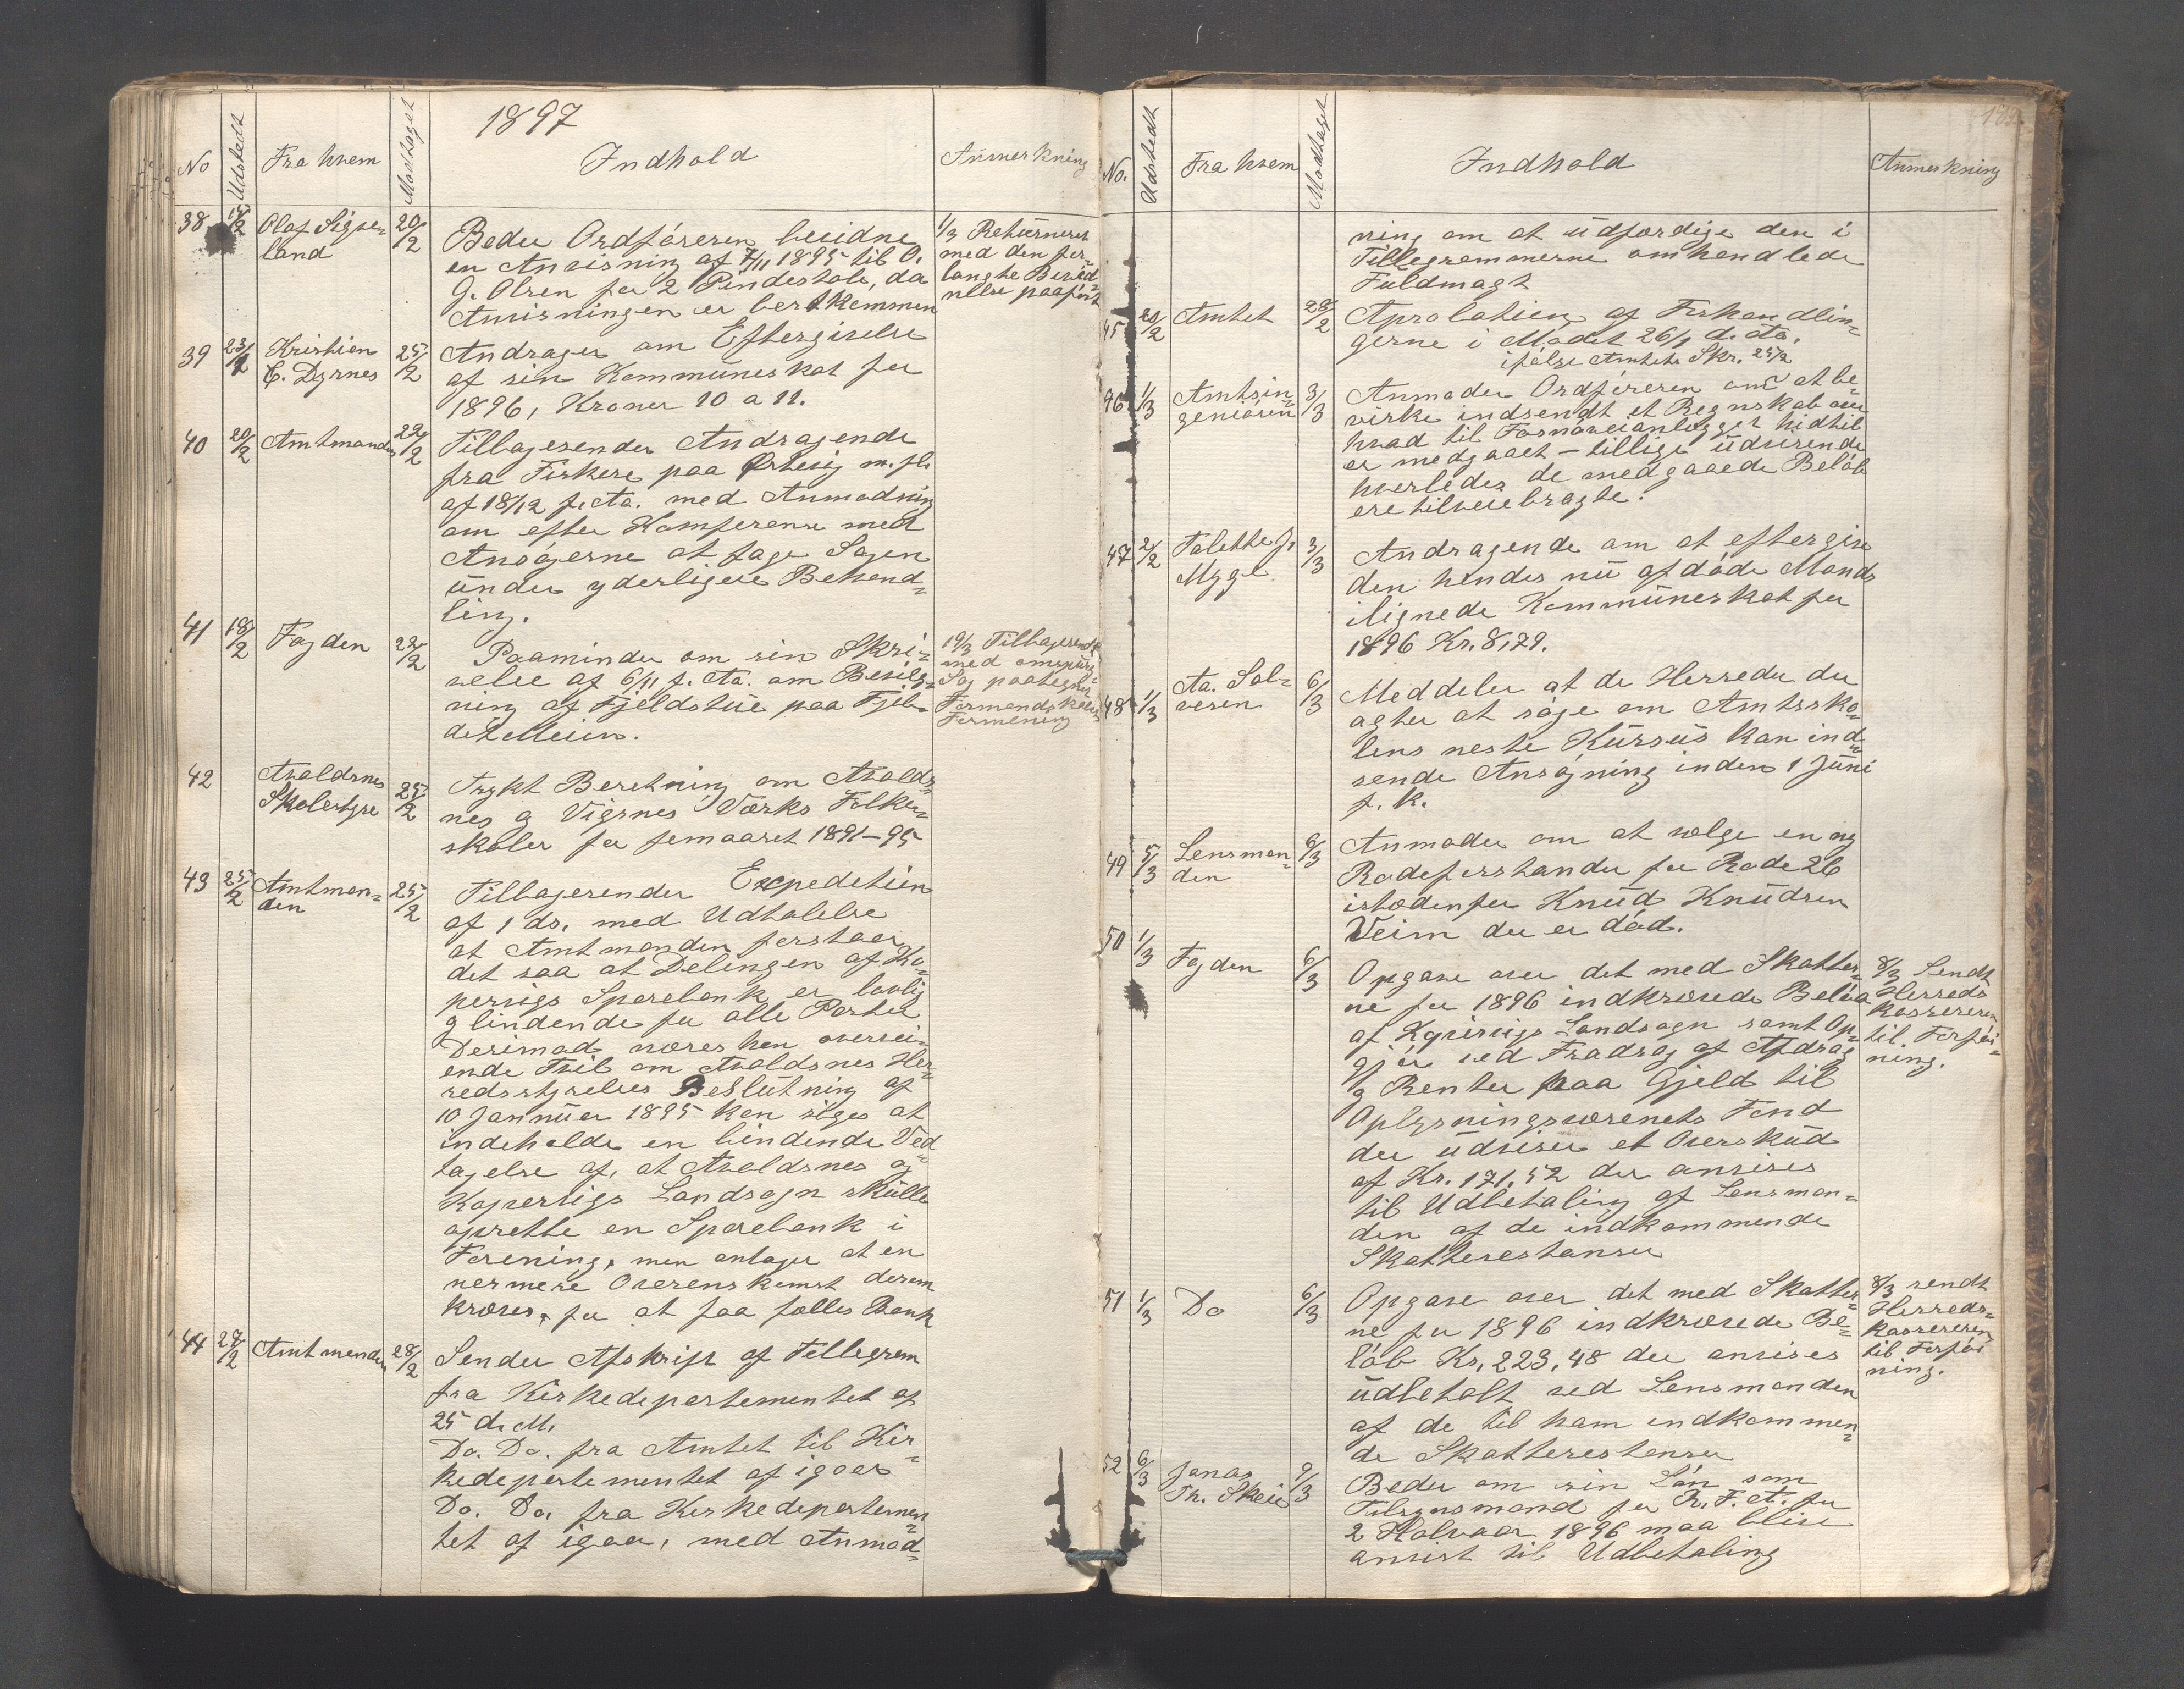 1897
No Udstedt Fra hvem Modtaget Indhold Anmerkning
38 15/2 Olaf Sigve- 20/2 Beder Ordføreren bevidne 1/3 Returneret
land en Anvisning af 7/11 1895 til O. med den for-
G. Olsen for 2 Pindestole, da langte Bevid-
Anvisningen er bortkommen nelse paaført
39 23/2 Kristian 25/2 Andrager om Eftergivelse
E. Dyrnes af sin Kommuneskat for
1896, Kroner 10 a 11.
40 20/2 Amtmanden 22/2 Tilbagesender Andragende
fra Fiskere paa m. fl.
af 18/12 f. Aa. med Anmodning
om efter Komferense med
Ansøgerne at tage Sagen
under yderligere Behand-
ling.
41 18/2 Fogden 22/2 Paaminder om sin Skri- 19/3 Tilbagesendt
velse af 6/11 f. Aa. om Bevilg- med omspurg
ning af Fjeldstue paa Fjel- Sag paategnet
det Meien. Formandskabets
Formening
42 Avaldsnes 25/2 Trykt Beretning om Avalds-
Skolestyre nes og Vigsnes Værks Folke-
skoler for femaaret 1891-95
43 25/2 Amtman- 25/2 Tilbagesender Expedetion
den af 1 ds. med Udtalelse
at Amtmanden forstaar
det saa at Delingen af Ko-
pervigs Sparebank er lovlig
g bindende for alle Parter
Derimod næres hen oversei-
ende Tvil om Avaldsnes Her-
redsstyrelses Beslutning af
10 Januar 1895 kan siges at
indeholde en bindende Ved-
tagelse af, at Avaldsnes og
Kopervigs Landsogn skulle
oprette en Sparebank i
Forening, men antager at en
nermere Overenskomst derom
kræves, for at faa fælles Bank
44 27/2 Amtmanden 28/2 Sender Afskrift af Tellegram
fra Kirkedepartementet af
25 d. M.
Do. Do. fra Amtet til Kir-
kedepartementet af igaar
Do. Do. fra Kirkedepartemen-
tet af igaar, med Anmod-
No. Udstedt Fra hvem Modtaget Indhold Anmerkning
ning om at udfærdige den i
Tillegrammerne omhandlede
Fuldmagt
45 20/2 Amtet 28/2 Aprolation af Forhandlin-
gerne i Mødet 26/1 d. Aa.
ifølse Amtets Skr. 25/2
46 1/3 Amtsin- 3/3 Anmoder Ordføreren om at be-
geniøren virke indsendt et Regnskab over
hvad til Fosnaveianlegget hidtil
er medgaaet - tillige udvisende
hvorledes de medgaaede Beløb
ere tilveiebragte.
47 2/2 Talette J. 3/3 Andragende om at eftergive
Mygl den hendes nu afdøde Mands
ilignede Kommuneskat for
1896 Kr. 8,79.
48 1/3 Aa. Sal- 6/3 Meddeler at de Herreder der
vesen agter at søge om Amtssko-
lens neste Kursus kan ind-
sende Ansøgning inden 1 Juni
f. k.
49 5/3 Lensman- 6/3 Anmoder om at vælge en ny
den Rodeforstander for Rode 26
istedenfor Knud Knudsen
Veim der er død.
50 1/3 Fogden 6/3 Opgave over det med Skatter- 8/3 Sendt
ne for 1896 indkrævede Beløb Herreds
af Kopervigs Landsogn samt Op- kassereren
gjør ved Fradrag af Afdrag til Forføi-
g Renter paa Gjeld til ning.
Oplysningsvæsenets Fond
der udviser et Overskud
af Kr. 171,52 der anvises
til Udbetaling af Lensman-
den af de indkommende
Skatterestanser
51 1/3 Do 6/3 Opgave over det med Skatter- 8/3 sendt
ne for 1896 indkrævede Be- Herreds-
løb Kr. 223,48 der anvises kassereren
udbetalt ved Lensmanden til Forføi
af de til ham indkommen- ning.
de Skatterestanser
52 6/3 Jonas 9/3 Beder om sin Løn som
Th. Skeie Tilsynsmand for R. F. A. for
2 Halvaar 1896 maa blive
anvist til Udbetaling